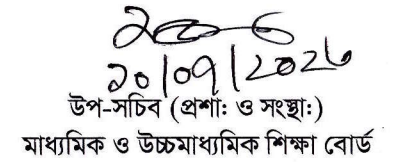 ২০/০৭/২০২৬
উপ-সচিব (প্রশাঃ ও সংস্থাঃ)
মাধ্যমিক ও উচ্চমাধ্যমিক শিক্ষা বোর্ড